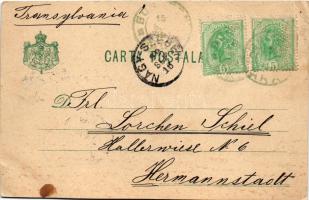 Transsylvania
CARTA POSTALA
NAGY-SZ
Frl.
Lorchen Schiel
Hallerwiese № 6
Hermannstadt